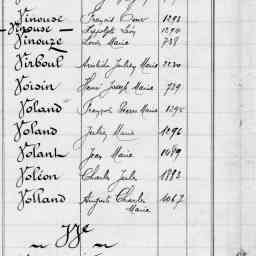 Vinouse François
Vinouse Hippolyte Léon 1290
Vinouze Louis Marie 738
Virboul Aristide Julien Marie
Voisin Henri Joseph Marie 739
Voland François Pierre Marie
Voland Julien Marie 1296
Volant Jean Marie 1089
Voléon Charles Jules 1883
Volland Auguste Charles 1067
Marie